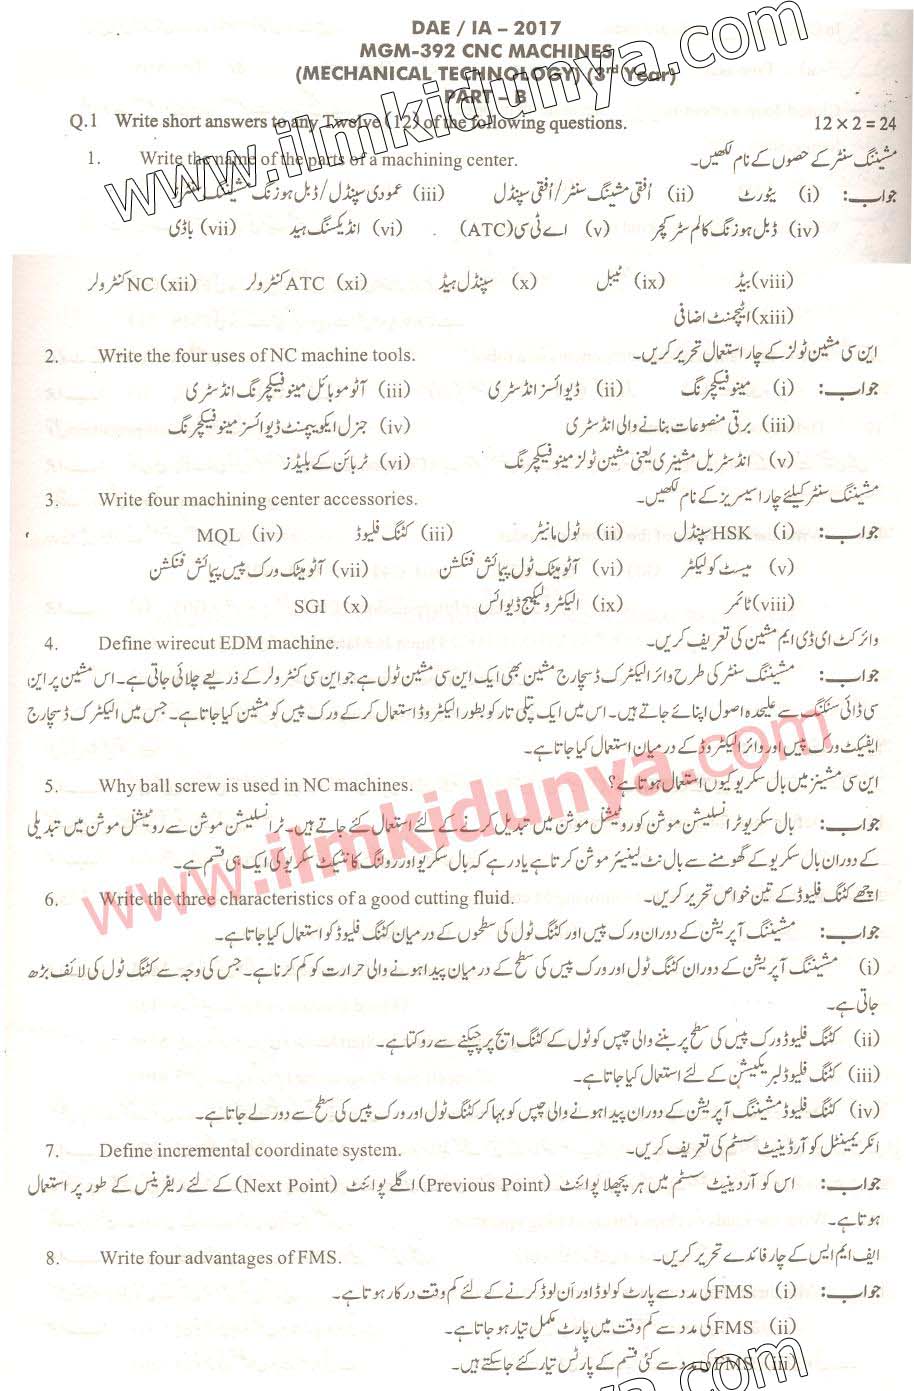 DAE / IA – 2017
MGM-392 CNC MACHINES
(MECHANICAL TECHNOLOGY) (3rd Year)
PART – B
Q.1 Write short answers to any Twelve (12) of the following questions. 12 × 2 = 24
1. Write the name of the parts of a machining center. مشیننگ سنٹر کے حصوں کے نام لکھیں۔
جواب: (i) یٹورٹ (ii) اُفقی مشیننگ سنٹر/اُفقی سپنڈل (iii) عمودی سپنڈل/ڈبل ہوزنگ مشیننگ سنٹر
(iv) ڈبل ہوزنگ کالم سٹرکچر (v) اے ٹی سی (ATC) (vi) انڈیکسنگ ہیڈ (vii) باڈی
(viii) بیڈ (ix) ٹیبل (x) سپنڈل ہیڈ (xi) ATC کنٹرولر (xii) NC کنٹرولر
(xiii) اٹیچمنٹ اضافی
2. Write the four uses of NC machine tools. این سی مشین ٹولز کے چار استعمال تحریر کریں۔
جواب: (i) مینوفیکچرنگ (ii) ڈیوائسز انڈسٹری (iii) آٹوموبائل مینوفیکچرنگ انڈسٹری
(iii) برقی منصوعات بنانے والی انڈسٹری (iv) جنرل ایکویپمنٹ ڈیوائسز مینوفیکچرنگ
(v) انڈسٹریل مشینری یعنی مشین ٹولز مینوفیکچرنگ (vi) ٹربائن کے بلیڈز
3. Write four machining center accessories. مشیننگ سنٹر کیلئے چار اسیسریز کے نام لکھیں۔
جواب: (i) HSK سپنڈل (ii) ٹول مانیٹر (iii) کٹنگ فلیوڈ (iv) MQL
(v) میسٹ کولیکٹر (vi) آٹومیٹک ٹول پیمائش فنکشن (vii) آٹومیٹک ورک پیس پیمائش فنکشن
(viii) ٹائمر (ix) الیکٹرو لیکیج ڈیوائس (x) SGI
4. Define wirecut EDM machine. وائر کٹ ای ڈی ایم مشین کی تعریف کریں۔
جواب: مشیننگ سنٹر کی طرح وائر الیکٹرک ڈسچارج مشین بھی ایک این سی مشین ٹول ہے جو این سی کنٹرولر کے ذریعے چلائی جاتی ہے۔ اس مشین پر این
سی ڈائی سنکنگ سے علیحدہ اصول اپنائے جاتے ہیں۔ اس میں ایک پتلی تار کو بطور الیکٹروڈ استعمال کر کے ورک پیس کو مشین کیا جاتا ہے۔ جس میں الیکٹرک ڈسچارج
ایفیکٹ ورک پیس اور وائر الیکٹروڈ کے درمیان استعمال کیا جاتا ہے۔
5. Why ball screw is used in NC machines. این سی مشینز میں بال سکریو کیوں استعمال ہوتا ہے؟
جواب: بال سکریو ٹرانسلیشن موشن کو روٹیشنل موشن میں تبدیل کرنے کے لئے استعمال کئے جاتے ہیں۔ ٹرانسلیشن موشن سے روٹیشنل موشن میں تبدیلی
کے دوران بال سکریو کے گھومنے سے بال نٹ لینیئر موشن کرتا ہے یاد رہے کہ بال سکریو اور رولنگ کانٹیکٹ سکریو کی ایک ہی قسم ہے۔
6. Write the three characteristics of a good cutting fluid. اچھے کٹنگ فلیوڈ کے تین خواص تحریر کریں۔
جواب: مشیننگ آپریشن کے دوران ورک پیس اور کٹنگ ٹول کی سطحوں کے درمیان کٹنگ فلیوڈ کو استعمال کیا جاتا ہے۔
(i) مشیننگ آپریشن کے دوران کٹنگ ٹول اور ورک پیس کی سطح کے درمیان پیدا ہونے والی حرارت کو کم کرنا ہے۔ جس کی وجہ سے کٹنگ ٹول کی لائف بڑھ
جاتی ہے۔
(ii) کٹنگ فلیوڈ ورک پیس کی سطح پر بننے والی چپس کو ٹول کے کٹنگ ایج پر چپکنے سے روکتا ہے۔
(iii) کٹنگ فلیوڈ لبریکیشن کے لئے استعمال کیا جاتا ہے۔
(iv) کٹنگ فلیوڈ مشیننگ آپریشن کے دوران پیدا ہونے والی چپس کو بہا کر کٹنگ ٹول اور ورک پیس کی سطح سے دور لے جاتا ہے۔
7. Define incremental coordinate system. انکریمینٹل کوآرڈینیٹ سسٹم کی تعریف کریں۔
جواب: اس کو آرڈینیٹ سسٹم میں ہر پچھلا پوائنٹ (Previous Point) اگلے پوائنٹ (Next Point) کے لئے ریفرینس کے طور پر استعمال
ہوتا ہے۔
8. Write four advantages of FMS. ایف ایم ایس کے چار فائدے تحریر کریں۔
جواب: (i) FMS کی مدد سے پارٹ کو لوڈ اور اَن لوڈ کرنے کے لئے کم وقت درکار ہوتا ہے۔
(ii) FMS کی مدد سے کم وقت میں پارٹ مکمل تیار ہو جاتا ہے۔
(iii) FMS کی مدد سے کئی قسم کے پارٹس تیار کئے جا سکتے ہیں۔
www.ilmkidunya.com
www.ilmkidunya.com